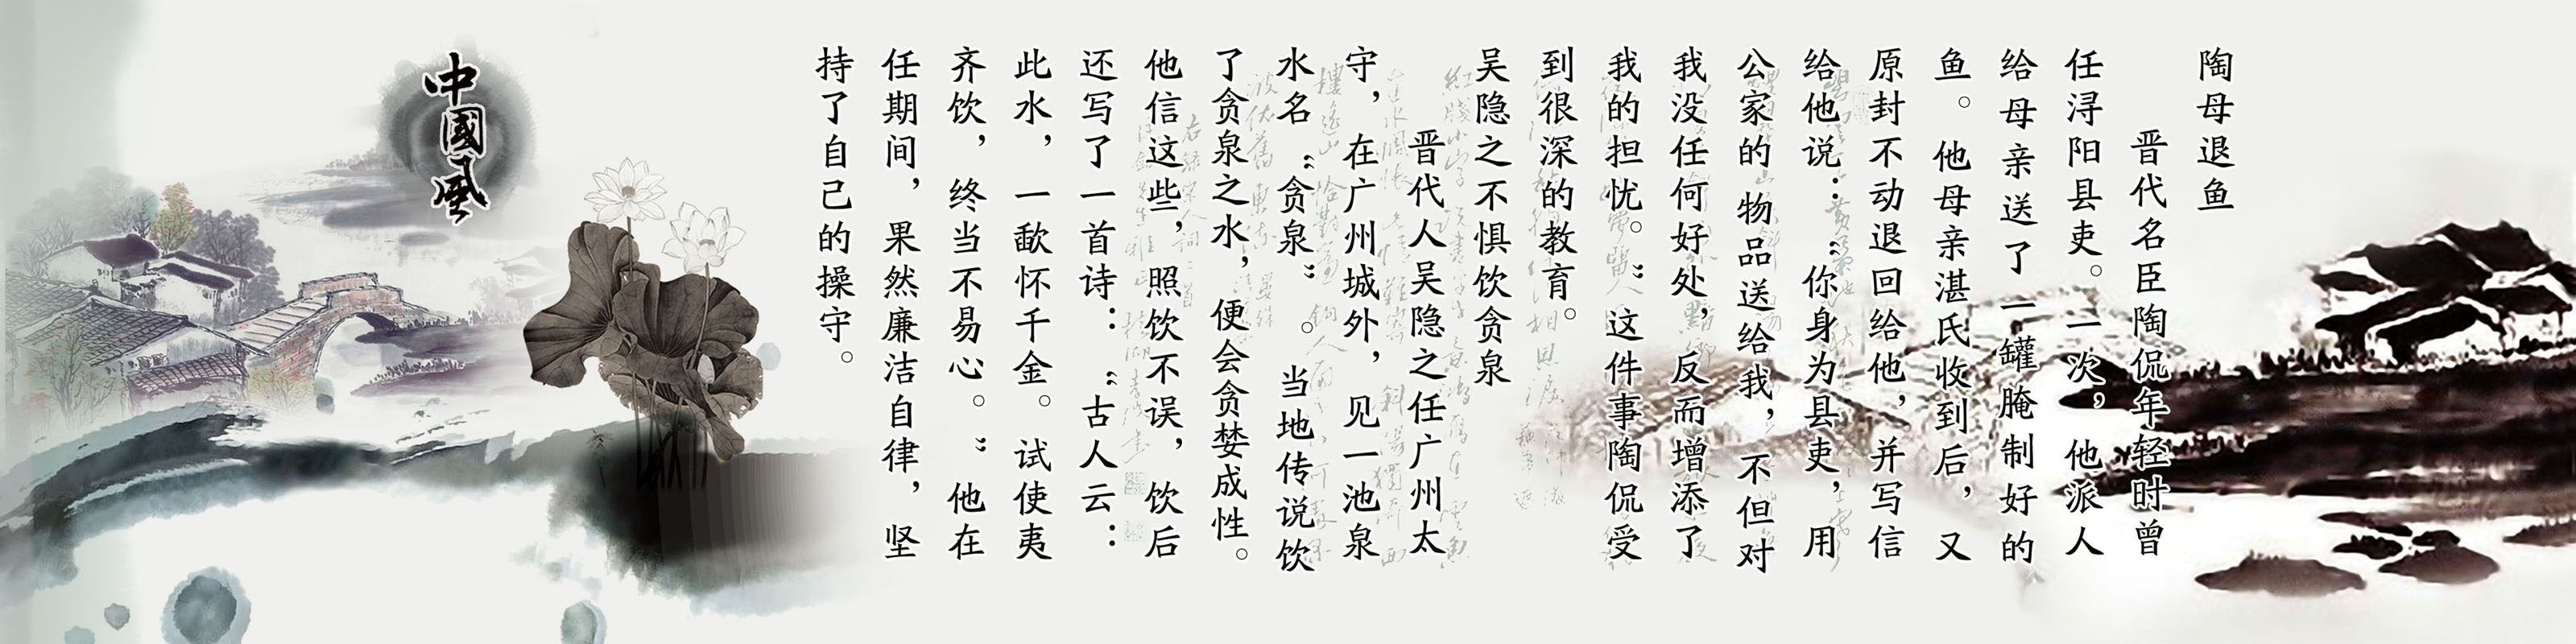 陶母退鱼
晋代名臣陶侃年轻时曾
任浔阳县吏。一次，他派人
给母亲送了一罐腌制好的
鱼。他母亲湛氏收到后，又
原封不动退回给他，并写信
给他说：“你身为县吏，用
公家的物品送给我，不但对
我没任何好处，反而增添了
我的担忧。”这件事陶侃受
到很深的教育。
吴隐之不惧饮贪泉
晋代人吴隐之任广州太
守，在广州城外，见一池泉
水名“贪泉”。当地传说饮
了贪泉之水，便会贪婪成性。
他信这些，照饮不误，饮后
还写了一首诗：“古人云：
此水，一歃怀千金。试使夷
齐饮，终当不易心。”他在
任期间，果然廉洁自律，坚
持了自己的操守。
中國風